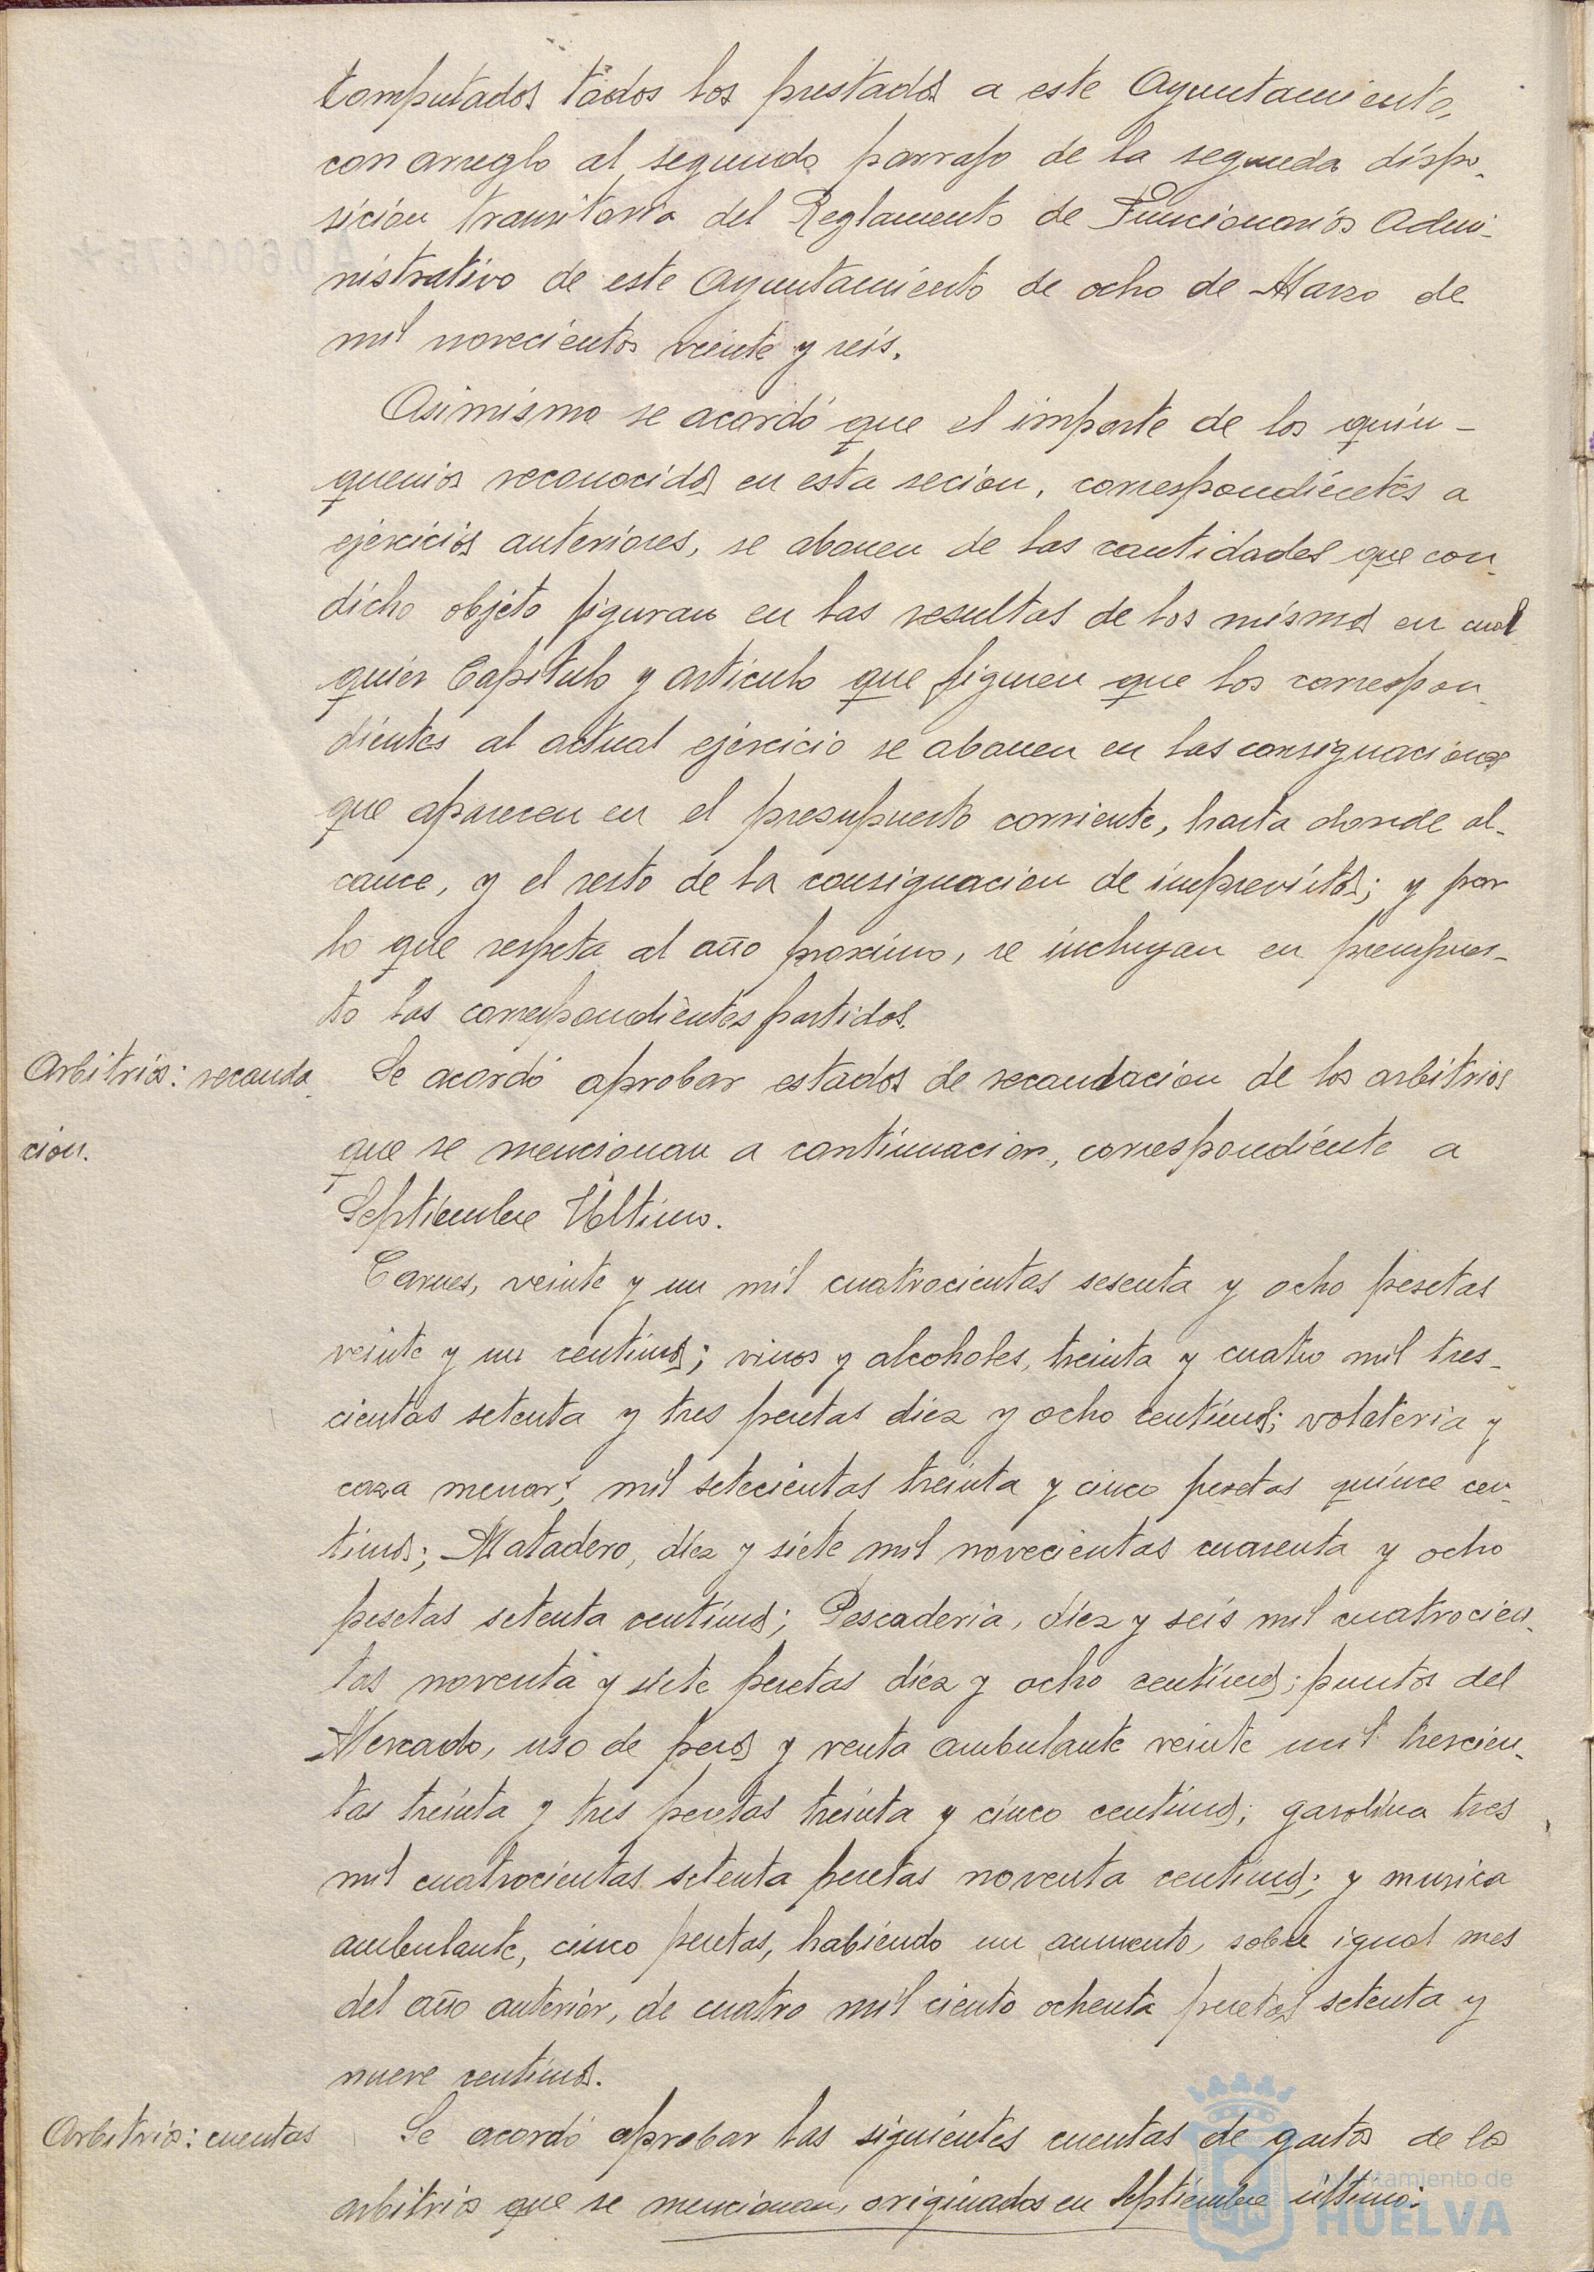 Computados todos los prestados a este Ayuntamiento,
con arreglo al segundo parrafo de la segunda dispo-
sición transitoria del Reglamento de Funcionarios Admi-
nistrativo de este Ayuntamiento de ocho de Marzo de
mil novecientos veinte y seis.
Asimismo se acordó que el importe de los quin-
quenios reconocidos en esta seción, correspondientes a
ejercicios anteriores, se abonen de las cantidades que con
dicho objeto figuran en las resultas de los mismos en cual
quier Capitulo y articulo que figuren que los correspon-
dientes al actual ejercicio se abonen en las consignaciones
que aparecen en el presupuesto corriente, hasta donde al-
cance, y el resto de la consignacion de imprevistos; y por
lo que respeta al año proximo, se incluyan en presupues-
to las correspondientes partidas.
Arbitrios: recauda
cion.
Se acordó aprobar estados de recaudacion de los arbitrios
que se mencionan a continuacion, correspondiente a
Septiembre Ultimo.
Carnes, veinte y un mil cuatrocientas sesenta y ocho pesetas
veinte y un centimos; vinos y alcoholes, treinta y cuatro mil tres-
cientas setenta y tres pesetas diez y ocho centimos; volateria y
caza menor; mil setecientas treinta y cinco pesetas quince cen-
timos; Matadero, diez y siete mil novecientas cuarenta y ocho
pesetas setenta centimos; Pescaderia, diez y seis mil cuatrocien-
tas noventa y siete pesetas diez y ocho centimos; puntos del
Mercado, uso de pesos y venta ambulante veinte mil trescien-
tas treinta y tres pesetas treinta y cinco centimos; gasolina tres
mil cuatrocientas setenta pesetas noventa centimos; y musica
ambulante, cinco pesetas, habiendo un aumento, sobre igual mes
del año anterior, de cuatro mil ciento ochenta pesetas setenta y
nueve centimos.
Arbitrios: cuentas
Se acordó aprobar las siguientes cuentas de gastos de los
arbitrios que se mencionan, originados en Septiembre último:
Ayuntamiento de
HUELVA